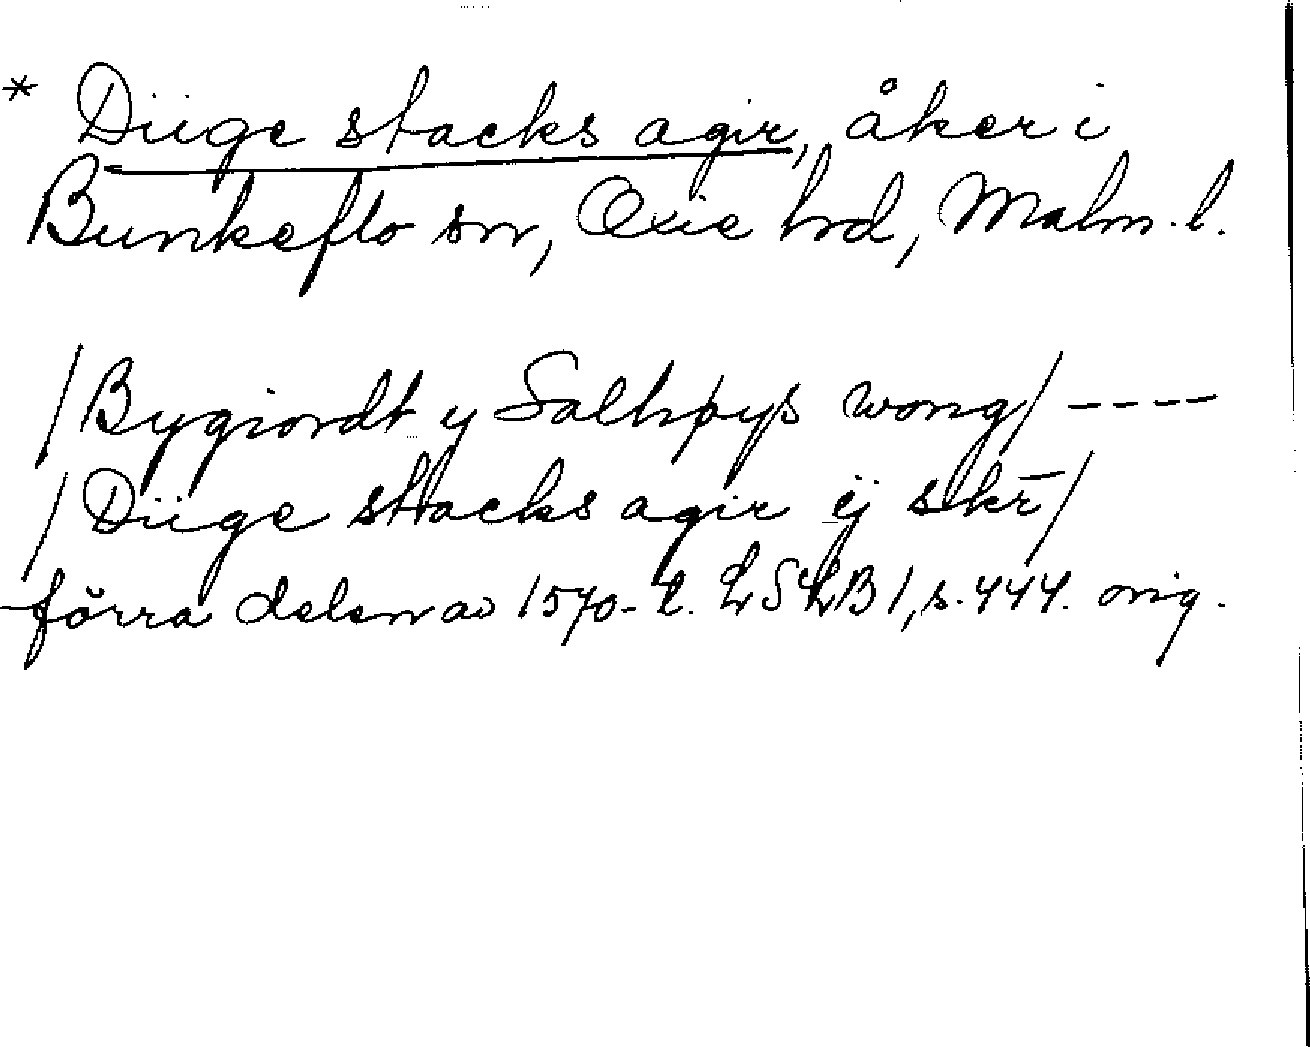 * Diige stacks agir, åker i
Bunkeflo sn, Oxie hd, Malm. l.
/Bygiordt y Salhpys wong/ ----
/Diige stacks agir ÿ skr̄/
förra delen av 1570-t. LSLB 1, s. 444. orig.